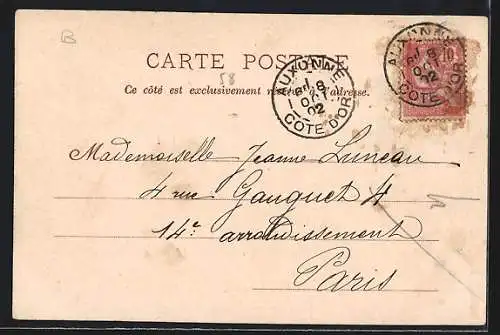 B
CARTE POSTALE
58
Ce côté est exclusivement réservé à l'adresse.
AUXONNE
8
OCT
02
COTE D'OR
10
AUXONNE
8
OCT
02
COTE D'OR
Mademoiselle Jeanne Luneau
4 rue Gauguet 4
14e arrondissement
Paris